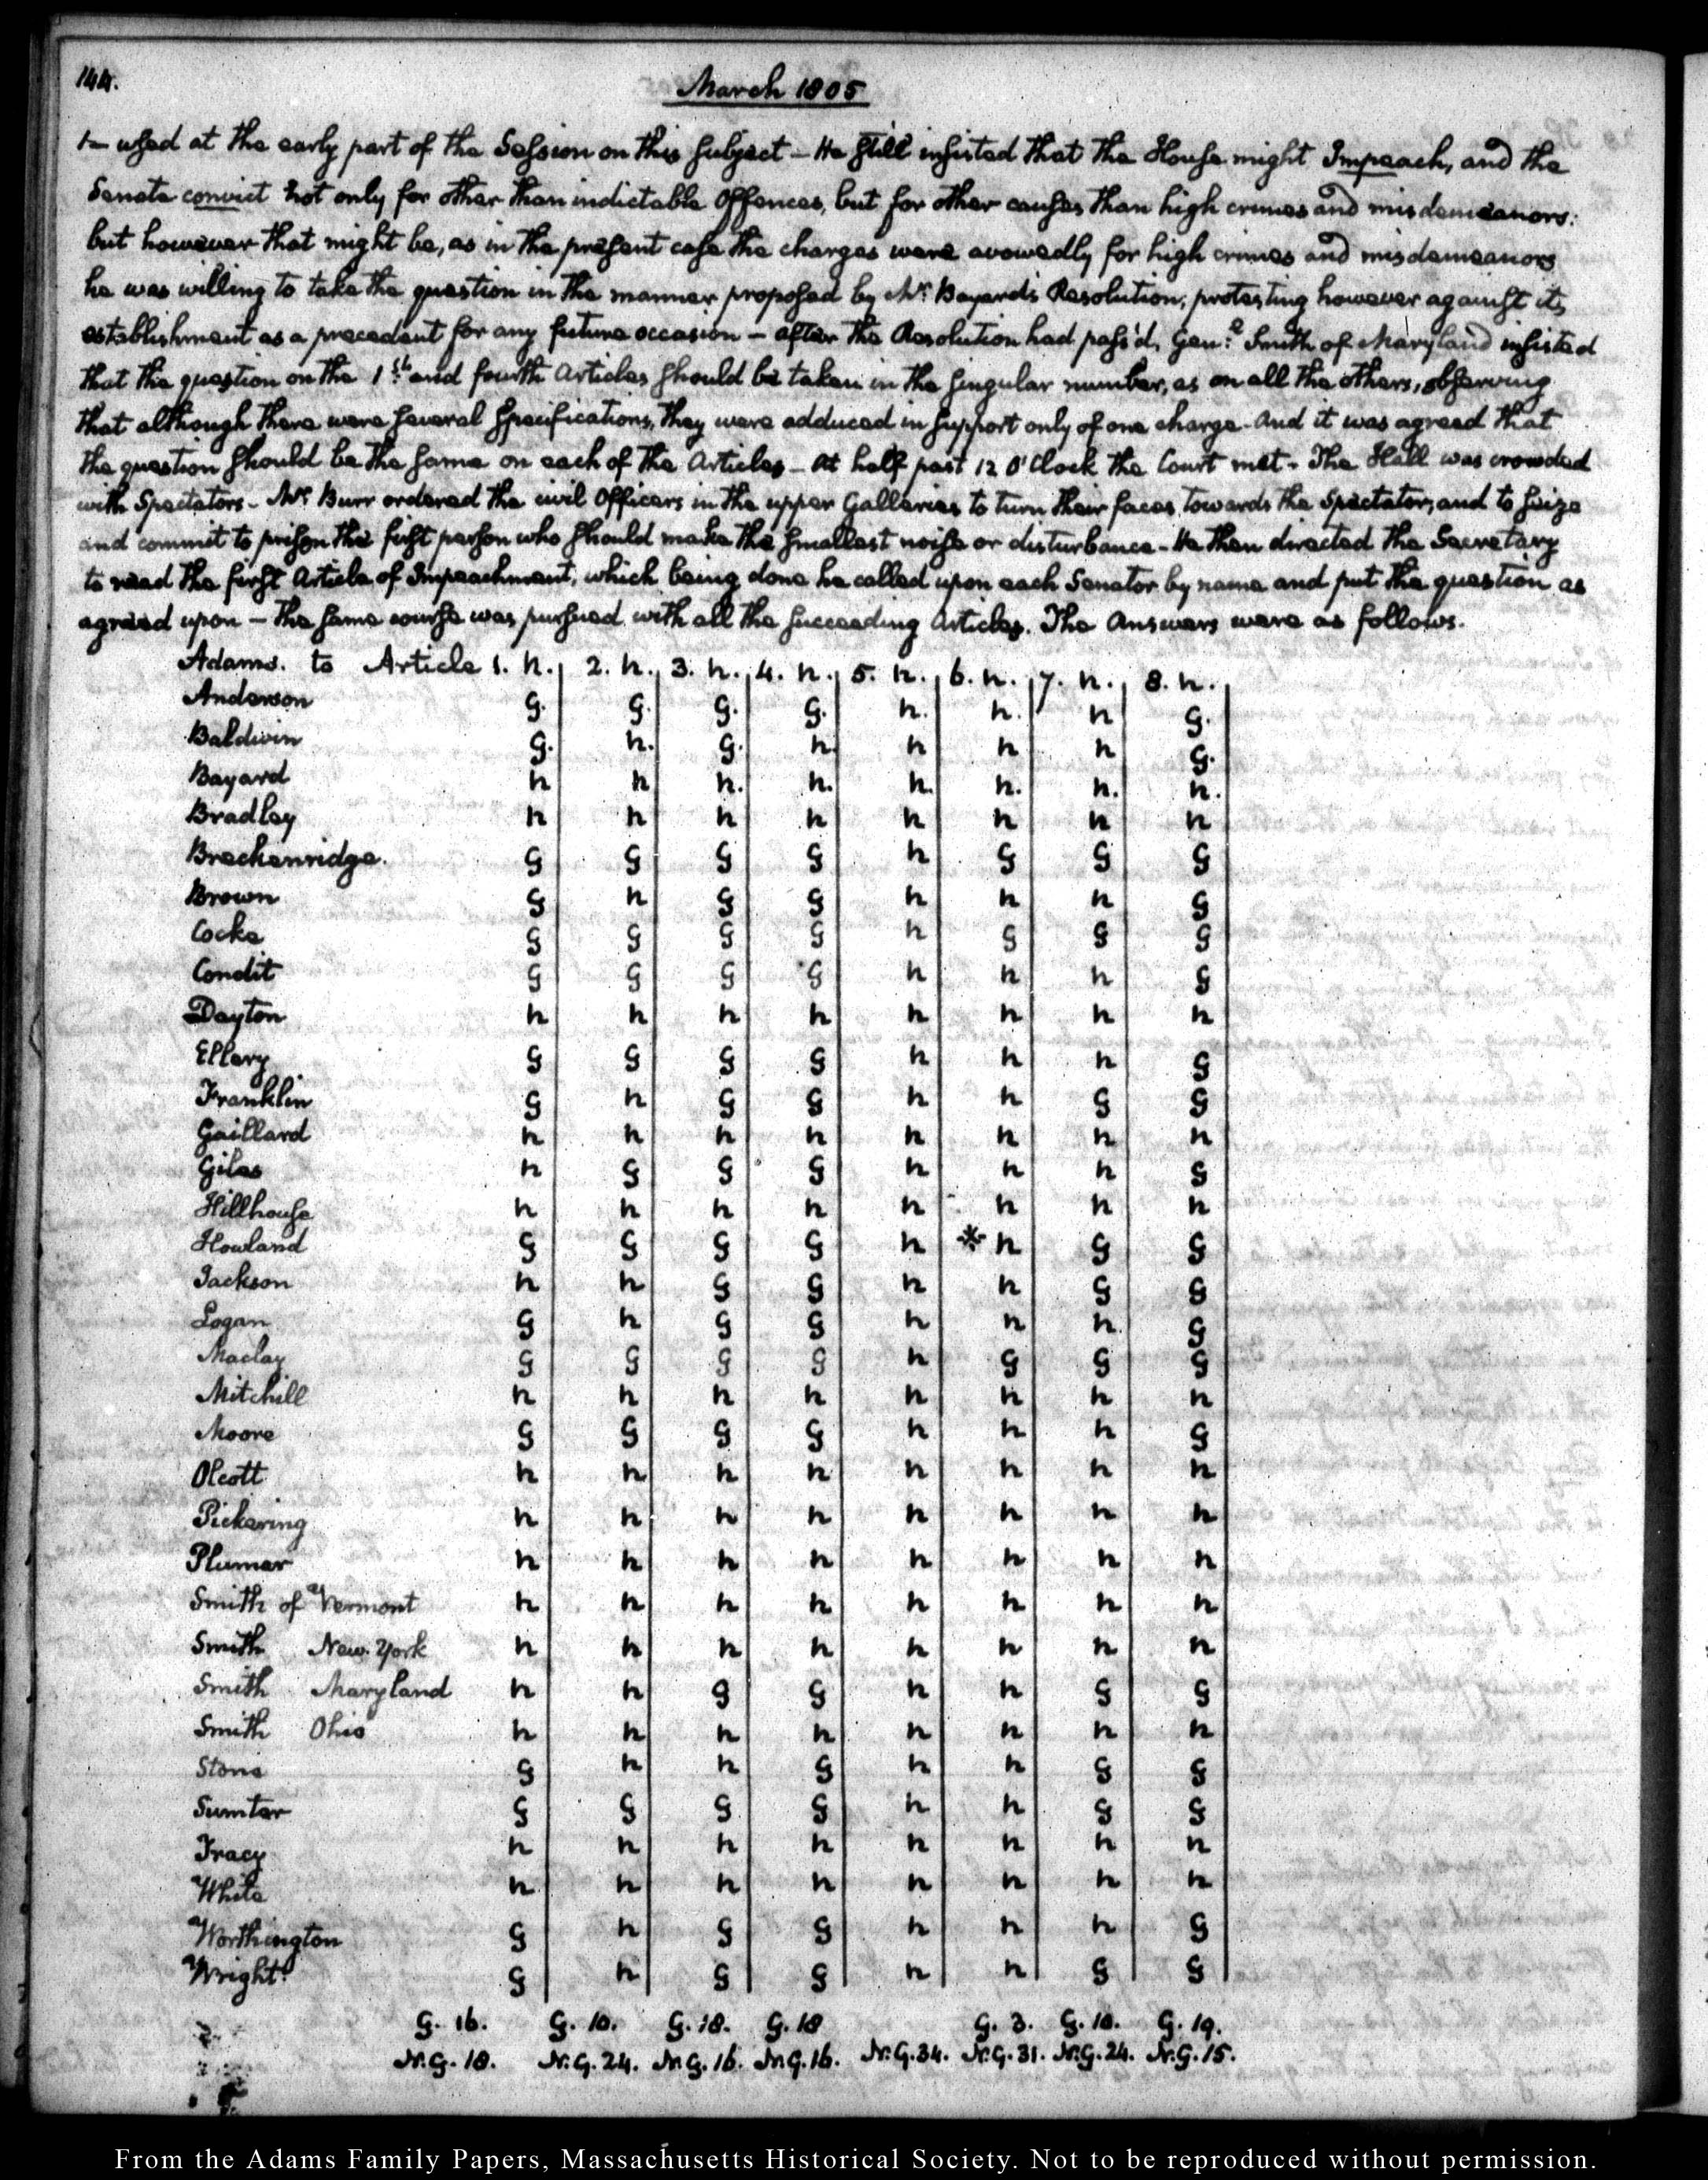 144.
March 1805
used at the early part of the Session on this subject – He still insisted that the House might Impeach, and the
Senate convict not only for other than indictable Offences, but for other causes than high crimes and misdemeanors:
but however that might be, as in the present case the charges were avowedly for high crimes and misdemeanors
he was willing to take the question in the manner proposed by Mr. Bayard's Resolution; protesting however against its
establishment as a precedent for any future occasion – after the Resolution had pass'd, Genl. Smith of Maryland insisted
that the question on the 1st and fourth Articles should be taken in the singular number, as on all the others, observing
that although there were several specifications, they were adduced in support only of one charge. And it was agreed that
the question should be the same on each of the Articles – At half past 12 O'Clock the Court met – The Hall was crowded
with Spectators – Mr. Burr ordered the civil Officers in the upper Galleries to turn their faces towards the Spectators, and to seize
and commit to prison the first person who should make the smallest noise or disturbance – He then directed the Secretary
to read the first Article of Impeachment, which being done he called upon each Senator by name and put the question as
agreed upon – The same course was pursued with all the succeeding Articles. The Answers were as follows.
Adams. to Article 1. n. 2. n. 3. n. 4. n. 5. n. 6. n. 7. n. 8. n.
Anderson g. g. g. g. n. n. n g.
Baldwin g. n. g. n. n n n g.
Bayard n n n. n. n. n. n. n.
Bradley n n n n n n n n
Breckenridge. g g g g n g g g
Brown g n g g n n n g
Cocke g g g g n g g g
Condit g g g g n n n g
Dayton n n n n n n n n
Ellery g g g g n n n g
Franklin g n g g n n g g
Gaillard n n n n n n n n
Giles n g g g n n n g
Hillhouse n n n n n n n n
Howland g g g g n * n g g
Jackson n n g g n n g g
Logan g n g g n n n. g
Maclay g g g g n g g g
Mitchill n n n n n n n n
Moore g g g g n n n g
Olcott n n n n n n n n
Pickering n n n n n n n n
Plumer n n n n n n n n
Smith of Vermont n n n n n n n n
Smith New York n n n n n n n n
Smith Maryland n n g g n n g g
Smith Ohio n n n n n n n n
Stone g n n g n n g g
Sumter g g g g n n g g
Tracy n n n n n n n n
White n n n n n n n n
Worthington g n g g n n n g
Wright. g n g g n n g g
G. 16. G. 10. G. 18. G. 18 G. 3. G. 10. G. 19.
N.G. 18. N.G. 24. N.G. 16. N.G. 16. N.G. 34. N.G. 31. N.G. 24. N.G. 15.
From the Adams Family Papers, Massachusetts Historical Society. Not to be reproduced without permission.